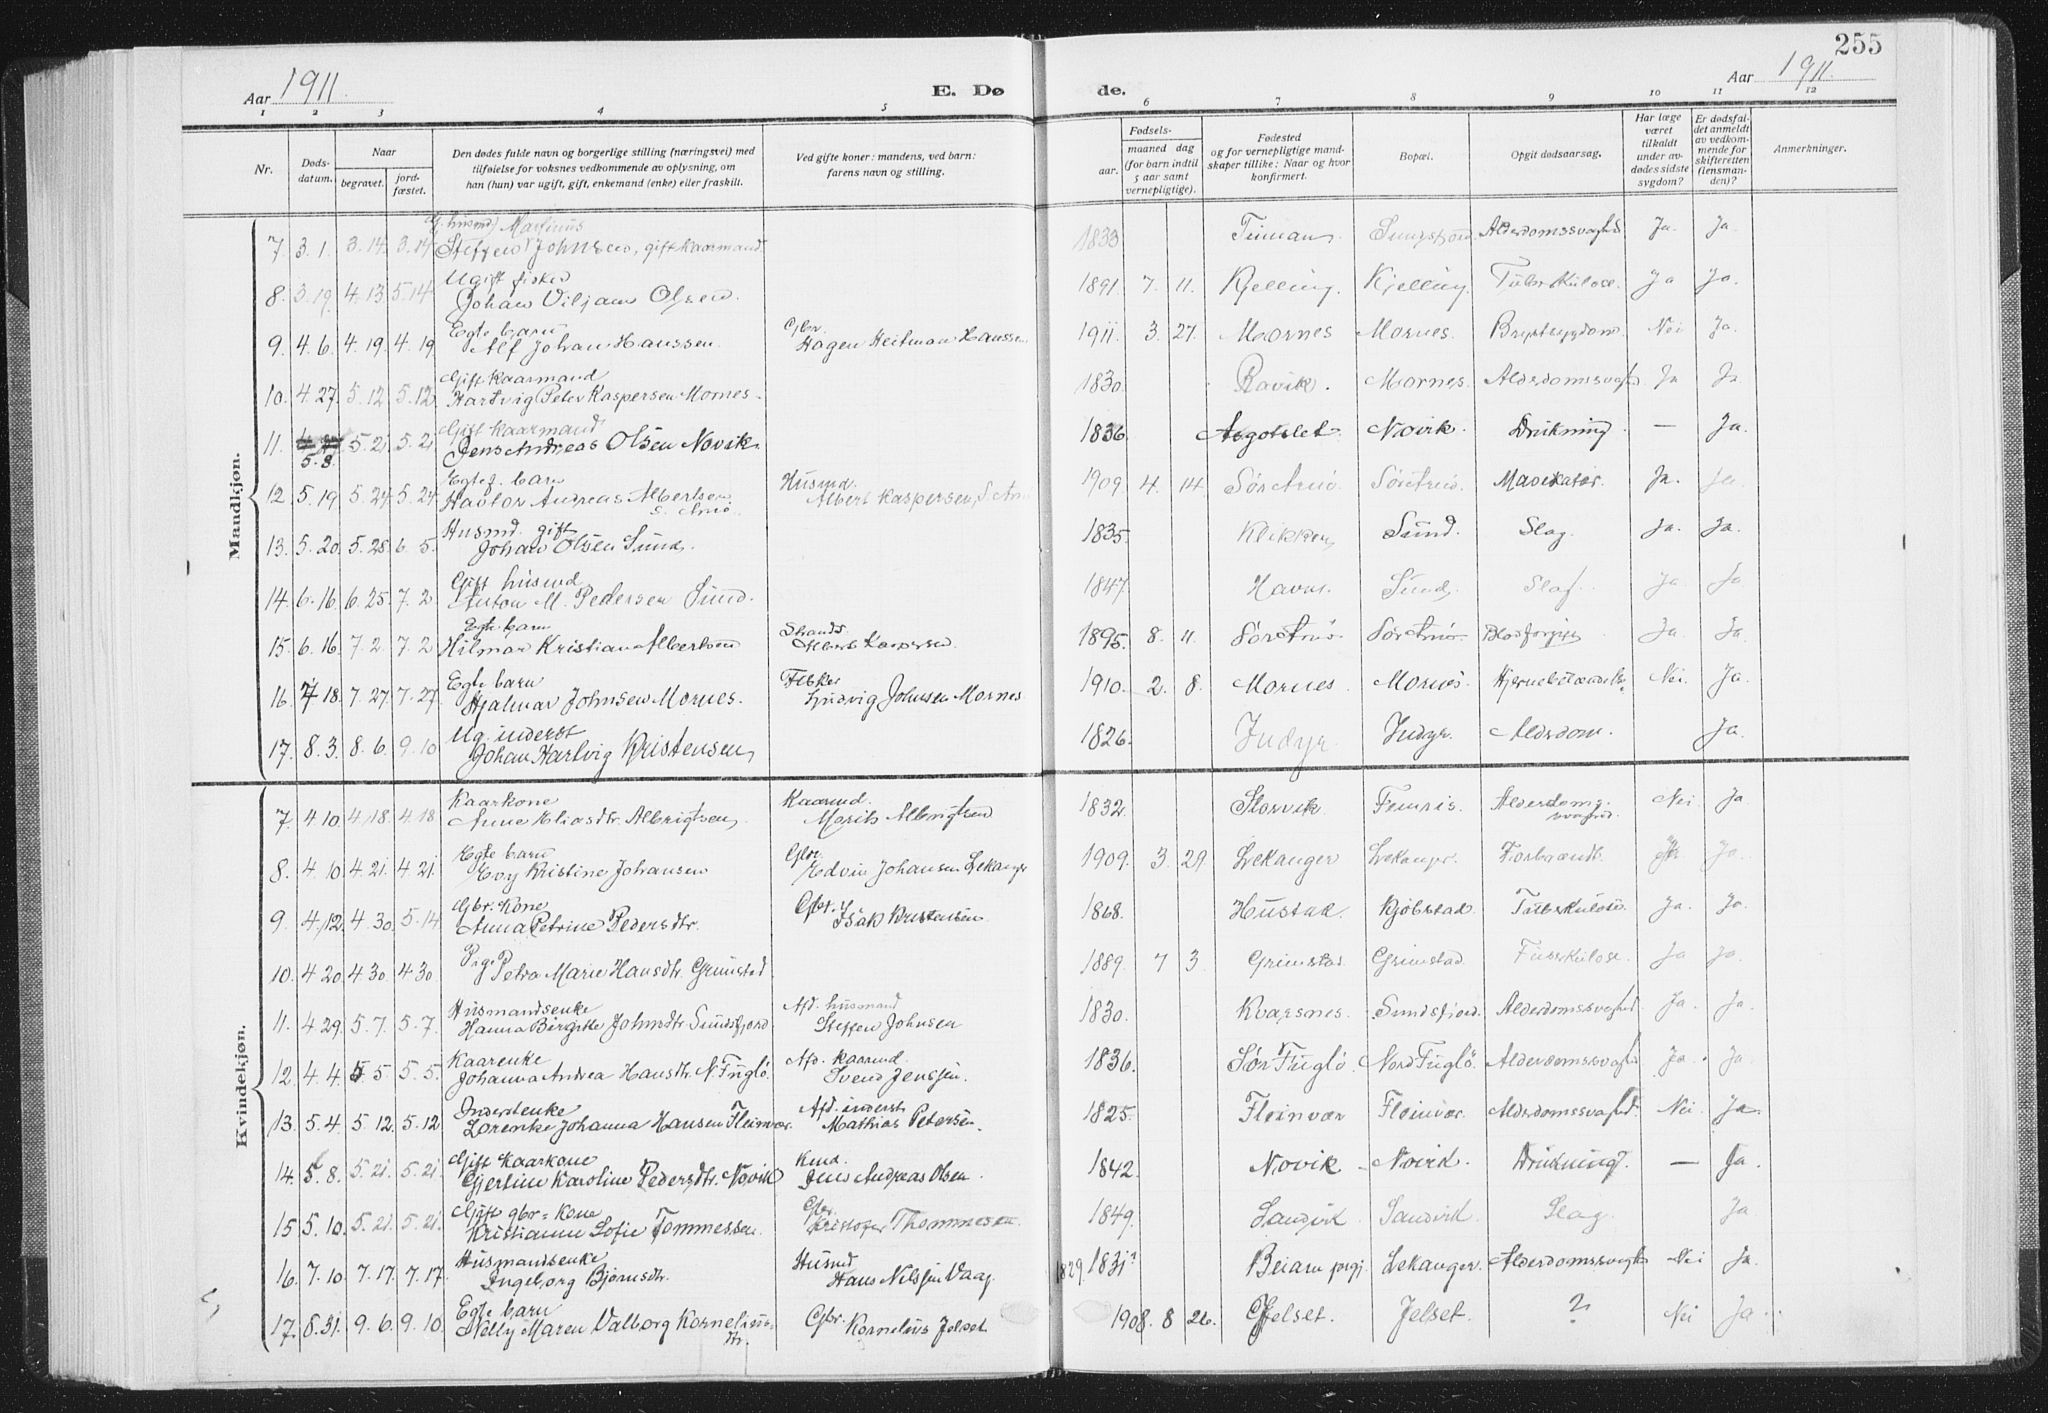 255
Aar 1911.
E. Døde.
Aar 1911.
1 2 3 4 5 6 7 8 9 10 11 12
Nr.
Døds-datum.
Naar
begravet.
jord-fæstet.
Den dødes fulde navn og borgerlige stilling (næringsvei) med
tilføielse for voksnes vedkommende av oplysning, om
han (hun) var ugift, gift, enkemand (enke) eller fraskilt.
Ved gifte koner: mandens, ved barn:
farens navn og stilling.
Fødsels-
aar.
maaned dag
(for barn indtil
5 aar samt
vernepligtige).
Fødested
og for vernepligtige mand-
skaper tillike: Naar og hvor
konfirmert.
Bopæl.
Opgit dødsaarsag.
Har læge
været
tilkaldt
under av-
dødes sidste
sygdom?
Er dødsfal-
det anmeldt
av vedkom-
mende for
skifteretten
(lensman-
den)?
Anmerkninger.
Mandkjøn.
husmd Martinus
7. 3. 1. 3. 14. 3. 14 Steffen Johnsen, gift kaarmand 1833 Sundsfjord. Alderdomssvaghed Ja. Ja.
Ugift fisker
8. 3. 19. 4. 13 5. 14 Johan Viljam Olsen. 1891. 7. 11. Kjelling. Kjelling. Tuberkulose. Ja Ja.
Egte barn Gbr.
9. 4. 6. 4. 19. 4. 19 Alf Johan Hanssen. Hagen Heitman Hanssen 1911. 3. 27. Mornes Mornes. Brystsygdom. Nei Ja.
Gift kaarmand
10. 4. 27. 5. 12 5. 12 Hartvig Peter Kaspersen Mornes. 1830. Ravik. Mornes. Alderdomssvaghed Ja Ja.
Gift kaarmand
11. 5. 8. 5. 21 5. 21 Jens Andreas Olsen Novik. 1836. Novik. Drukning — Ja.
Egte barn Husmd.
12. 5. 19. 5. 24. 5. 24. Andreas Albertsen S. Arnø. Albert Kaspersen, S. Arnø 1909. 4. 14 Sør Arnø Sør Arnø. Ja. Ja
Husmd. gift
13. 5. 20. 5. 28. 6. 5. Johan Olsen Sund. 1835. Sund. Slag. Ja. Ja.
Gift husmd
14. 6. 16. 6. 25. 7. 2 Anton M. Pedersen Sund. 1847. Sund. Slag. Ja Ja
Egte barn
15. 6. 16. 7. 2. 7. 2 Hilmar Kristian Albertsen Albert Kaspersen 1895. 8. 11 Sør Arnø Sør Arnø. Ja. Ja.
Egte barn Fisker
16. 7. 18. 7. 27. 7. 27. Hjalmar Johnsen Mornes. Ludvig Johnsen Mornes 1910. 2. 8. Mornes. Mornes. Hjernebetændelse Nei. Ja.
Ug. inderst
17. 8. 3. 8. 6. 9. 10 Johan Hartvig Kristensen 1826. Indyr Indyr. Alderdom. Ja.
Kvindekjøn.
Kaarkone Kaarmd.
7. 4. 10. 4. 18. 4. 18 Anne Eliasdtr. Albrigtsen. Morits Albrigtsen 1832. Storvik Femris. Alderdoms-svaghed. Nei. Ja
Egte barn Gbr.
8. 4. 10 4. 21. 4. 21. Evy Kristine Johansen Edvin Johansen Lekanger 1909. 3. 29. Lekanger Lekanger. Forbrændt. Ja.
Gbr. kone Gbr.
9. 4. 12. 4. 30. 5. 14 Anna Petrine Pedersdtr. Isak Kristensen. 1868. Hustad. Kjøbstad. Tuberkulose. Ja. Ja.
Pige
10. 4. 20 4. 30. 4. 30 Petra Marie Hansdtr. Grimstad 1889. 7 3. Grimstad Grimstad. Tuberkulose Ja Ja.
Husmandsenke Afd. husmand
11. 4. 29. 5. 7. 5. 7. Hanna Birgitte Johnsdtr. Sundsfjord Steffen Johnsen 1830. Kvarsnes. Sundsfjord. Alderdomssvaghed Ja. Ja.
Kaarenke Afd. kaarmd.
12. 4. 4. 5. 5. 5. 5. Johanna Andrea Hansdtr. N. Fuglø. Svend Jenssen. 1836. Sør Fuglø. Nord Fuglø. Alderdomssvaghed Ja. Ja
Inderstenke Afd. inderst
13. 5. 4. 5. 12. 5. 12 Lorentse Johanna Hansen Fleinvær. Mathias Petersen. 1825. Fleinvær Fleinvær. Alderdomssvaghed. Nei. Ja.
Gift kaarkone Kmd.
14. 5. 8. 5. 21. 5. 21. Gjertine Karoline Pedersdtr. Novik Jens Andreas Olsen 1842. Novik Novik. Drukning. — Ja.
Gift gbr=kone Gbr.
15 5. 10. 5. 21. 5. 21. Kristianne Sofie Tommessen. Kristofer Thommesen 1849. Sandvik. Sandvik. Slag. Ja.
Husmandsenke Husmd
16. 7. 10. 7. 17. 7. 17. Ingeborg Bjørnsdtr. Hans Nilssen Vaag. 1829. 1831? Beiarn prgj. Lekanger. Alderdomssvaghed Nei Ja.
Egte barn Gbr.
17. 8. 31. 9. 6. 9. 10 Nelly Maren Valborg Korneliusdtr. Kornelius Jelset. 1908. 8 26. Jelset. Jelset. ? Nei Ja.